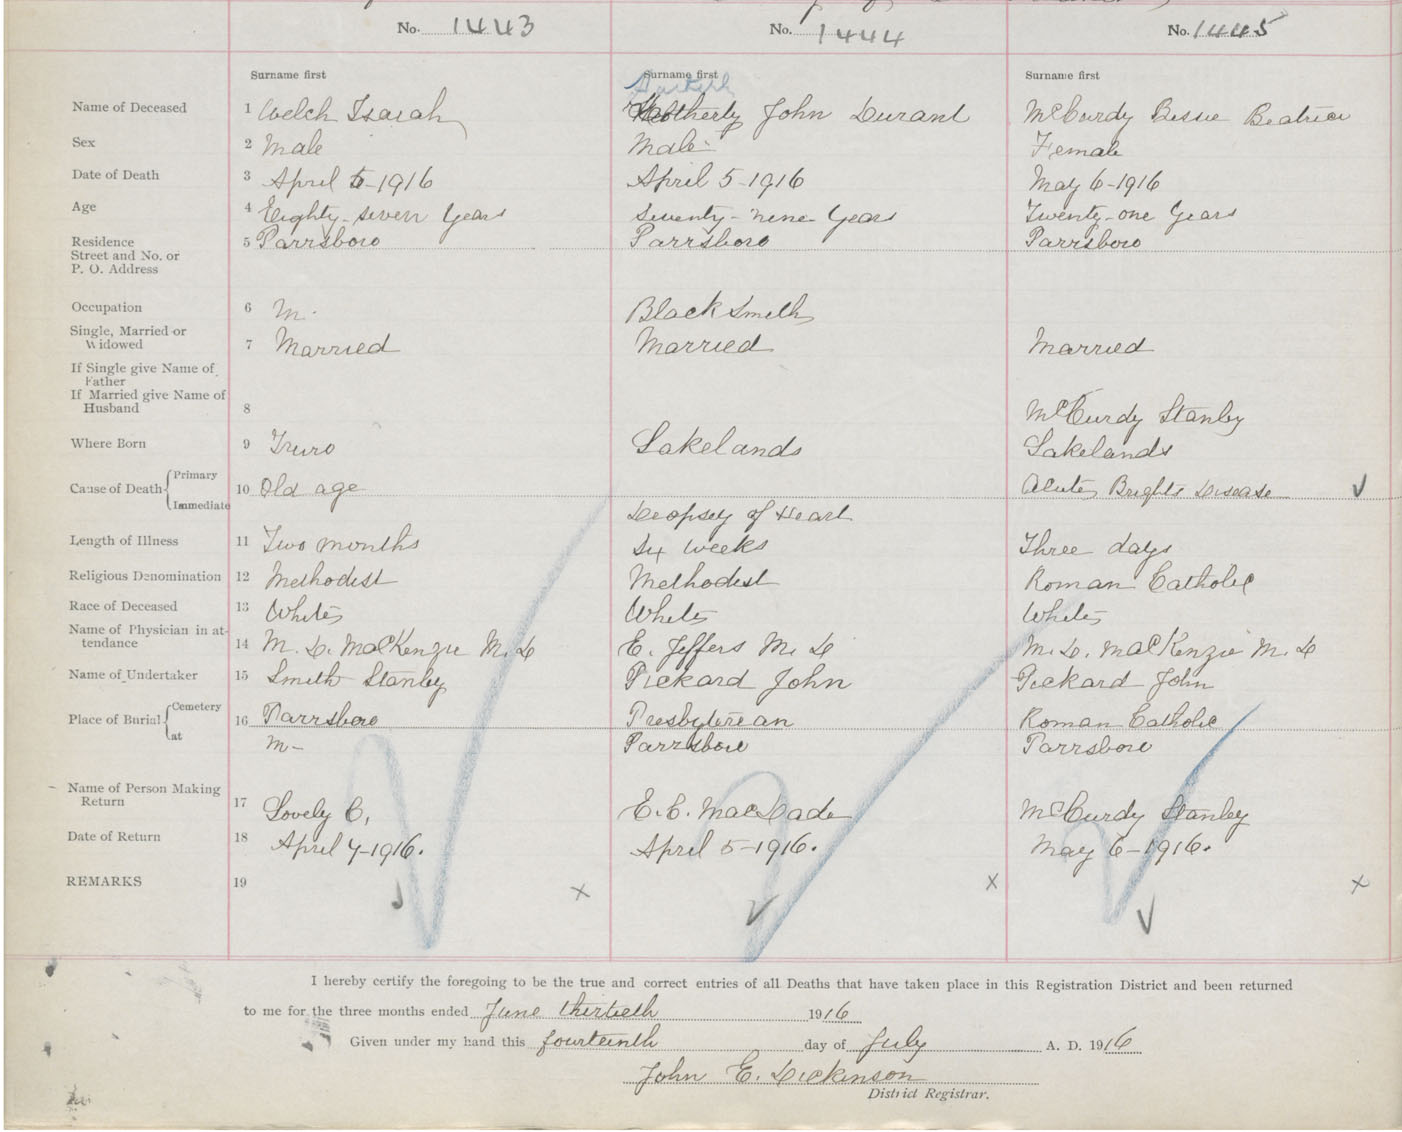 No. 1443 No. 1444 No. 1445
Surname first Surname first Surname first
Name of Deceased 1 Welch Isaiah John Durant McCurdy Bessie Beatrice
Sex 2 Male Male Female
Date of Death 3 April 5-1916 April 5-1916 May 6-1916
Age 4 Eighty-seven Years Seventy-nine Years Twenty-one Years
Residence 5 Parrsboro Parrsboro Parrsboro
Street and No. or
P. O. Address
Occupation 6 M. Black Smith
Single, Married or
Widowed 7 Married Married Married
If Single give Name of
Father
If Married give Name of
Husband 8 McCurdy Stanley
Where Born 9 Truro Lakelands Lakelands
Cause of Death Primary
10 Old age Acute Brights Disease ✓
Immediate Dropsey of Heart
Length of Illness 11 Two months Six weeks Three days
Religious Denomination 12 Methodist Methodist Roman Catholic
Race of Deceased 13 White White White
Name of Physician in at-
tendance 14 M. D. MacKenzie M. D E. Jeffers M. D M. D. MacKenzie M. D
Name of Undertaker 15 Smith Stanley Pickard John Pickard John
Place of Burial Cemetery 16 Parrsboro Presbyterian Roman Catholic
at M- Parrsboro Parrsboro
Name of Person Making
Return 17 Lovely C. E. C. MacDade McCurdy Stanley
Date of Return 18 April 7-1916. April 5-1916. May 6-1916.
REMARKS 19 x x x
I hereby certify the foregoing to be the true and correct entries of all Deaths that have taken place in this Registration District and been returned
to me for the three months ended June thirtieth 1916
Given under my hand this fourteenth day of July A. D. 1916
John E. Dickinson
District Registrar.